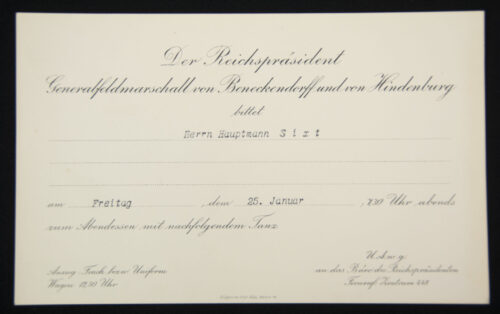 Der Reichspräsident
Generalfeldmarschall von Beneckendorff und von Hindenburg
bittet
Herrn Hauptmann Sixt
am Freitag, dem 25. Januar, 7.30 Uhr abends
zum Abendessen mit nachfolgendem Tanz
U.A.w.g.
Anzug: Frack bezw. Uniform
an das Büro des Reichspräsidenten
Wagen 12.30 Uhr
Fernruf Zentrum